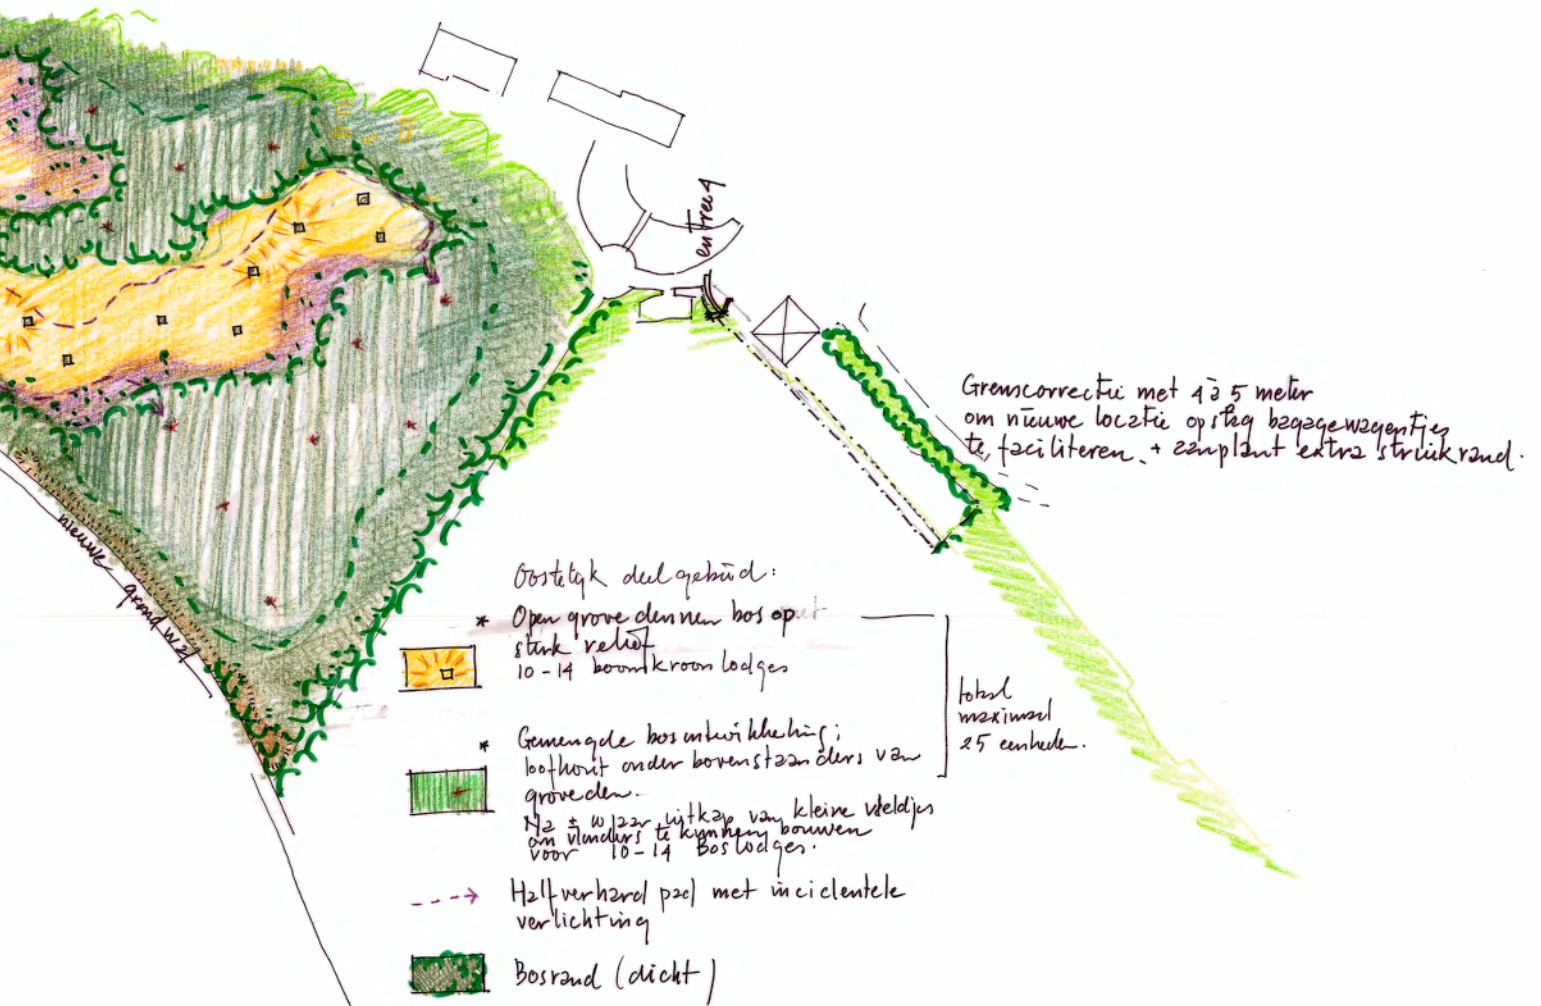 entree 4
Grenscorrectie met 4 à 5 meter
om nieuwe locatie opslag bagagewagentjes
te faciliteren. + aanplant extra struikrand.
nieuwe grondwal
Oostelijk deelgebied:
* Open grove dennen bos op
sterk reliëf
10-14 boomkroon lodges
* Gemengde bosontwikkeling;
loofhout onder bovenstaanders van
groveden.
Na ± 10 jaar uitkap van kleine veldjes
om vlonders te kunnen bouwen
voor 10-14 Boslodges.
totaal
maximaal
25 eenheden.
Halfverhard pad met incidentele
verlichting
Bosrand (dicht)